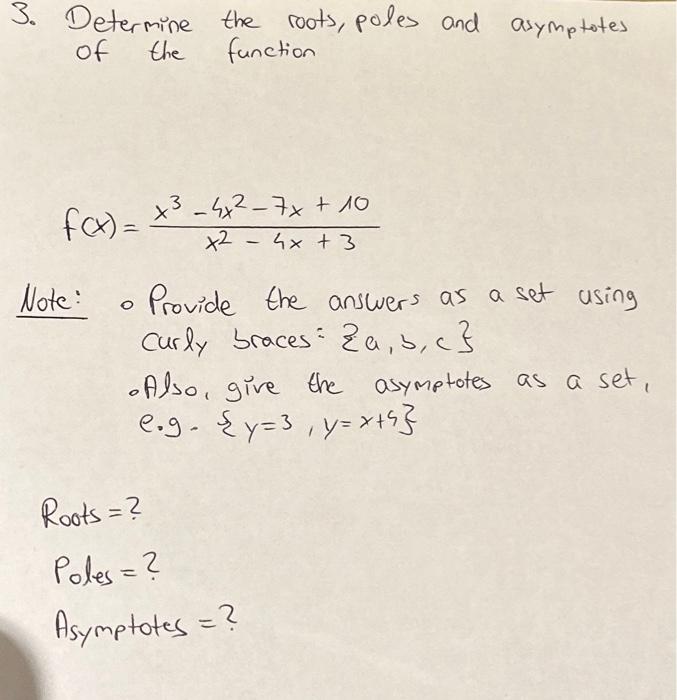 3. Determine the roots, poles and asymptotes
of the function
f(x) = x³ - 4x² - 7x + 10
x² - 4x + 3
Note: o Provide the answers as a set using
curly braces: {a, b, c}
o Also, give the asymptotes as a set,
e.g. {y=3, y=x+4}
Roots = ?
Poles = ?
Asymptotes = ?